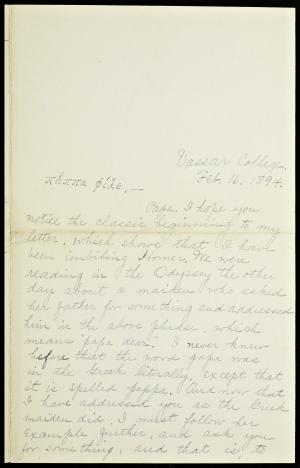 Vassar College.
Feb. 16. 1894.
πάππα φίλε, —
Papa, I hope you
notice the classic beginning to my
letter, which shows that I have
been imbibing Homer. We were
reading in the Odyssey the other
day about a maiden who asked
her father for something and addressed
him in the above phrase, which
means "papa dear." I never knew
before that the word papa was
in the Greek literally, except that
it is spelled pappa. And now that
I have addressed you as the Greek
maiden did, I must follow her
example further, and ask you
for something, and that is, to